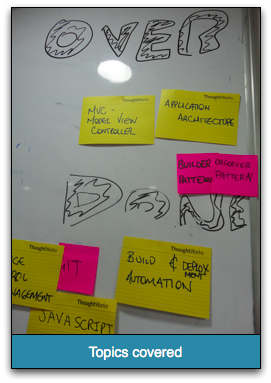 OVER
ThoughtWorks
MVC -
MODEL VIEW
CONTROLLER
ThoughtWorks
APPLICATION
ARCHITECTURE
BUILDER
PATTERN
OBSERVER
PATTERN
ThoughtWorks
ThoughtWorks
BUILD & DEPLOY
MENT
AUTOMATION
ThoughtWorks
JAVASCRIPT
Topics covered